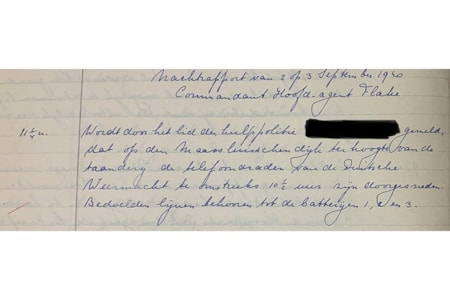 Nachtrapport van 2 op 3 September 1940
Commandant Hoofd-agent Flake
11¼ u. Wordt door het lid der hulppolitie gemeld,
dat op den Maassluisschendijk ter hoogte van de
taanderij de telefoondraden van de Duitsche
Weermacht te omstreeks uur zijn doorgesneden.
Bedoelde lijnen behooren tot de batterijen 1, 2 en 3.